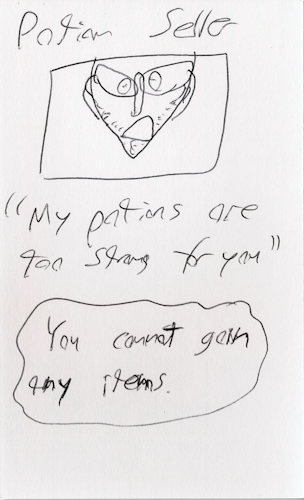 Potion Seller
"My potions are
too strong for you"
You cannot gain
any items.